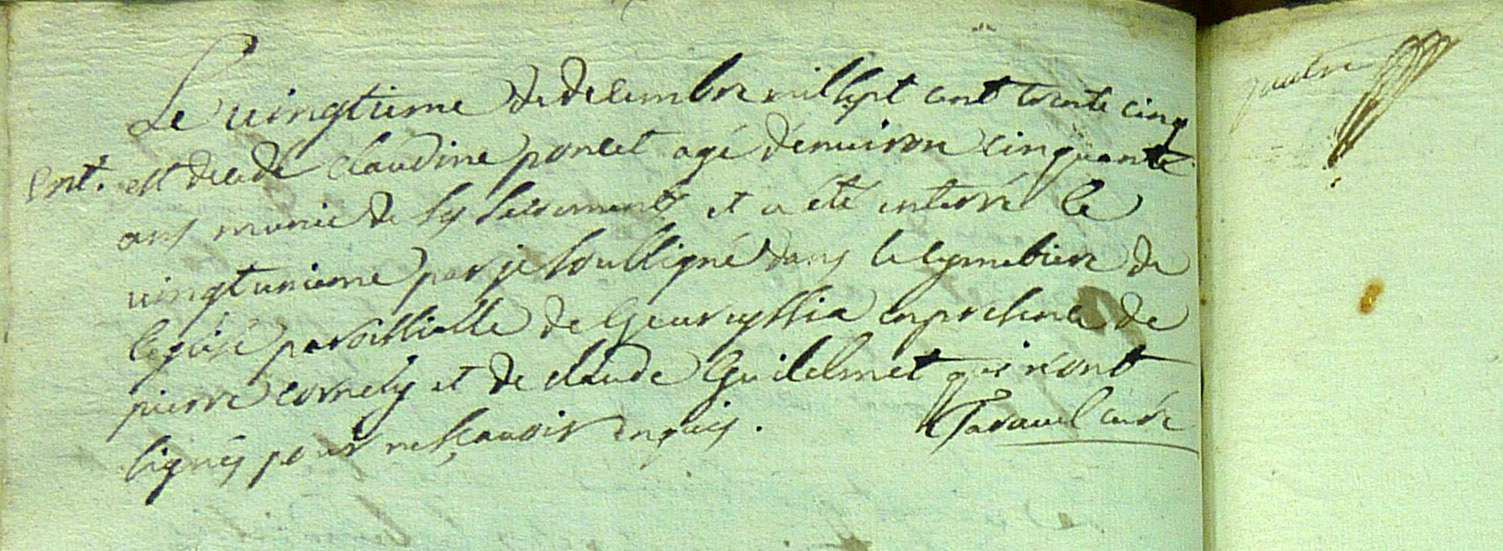 Le vingtieme de decembre mil sept cent trente cinq
Ent. est decedé claudine poncet agé denviron cinquante
ans munie de ses sacrements et a été enterré le
vingtunieme par je soussigné dans le cymetiere de
leglise paroissialle de en presence de
pierre cornely et de claude Guilelmet qui nont
signés pour ne scavoir enquis. curé